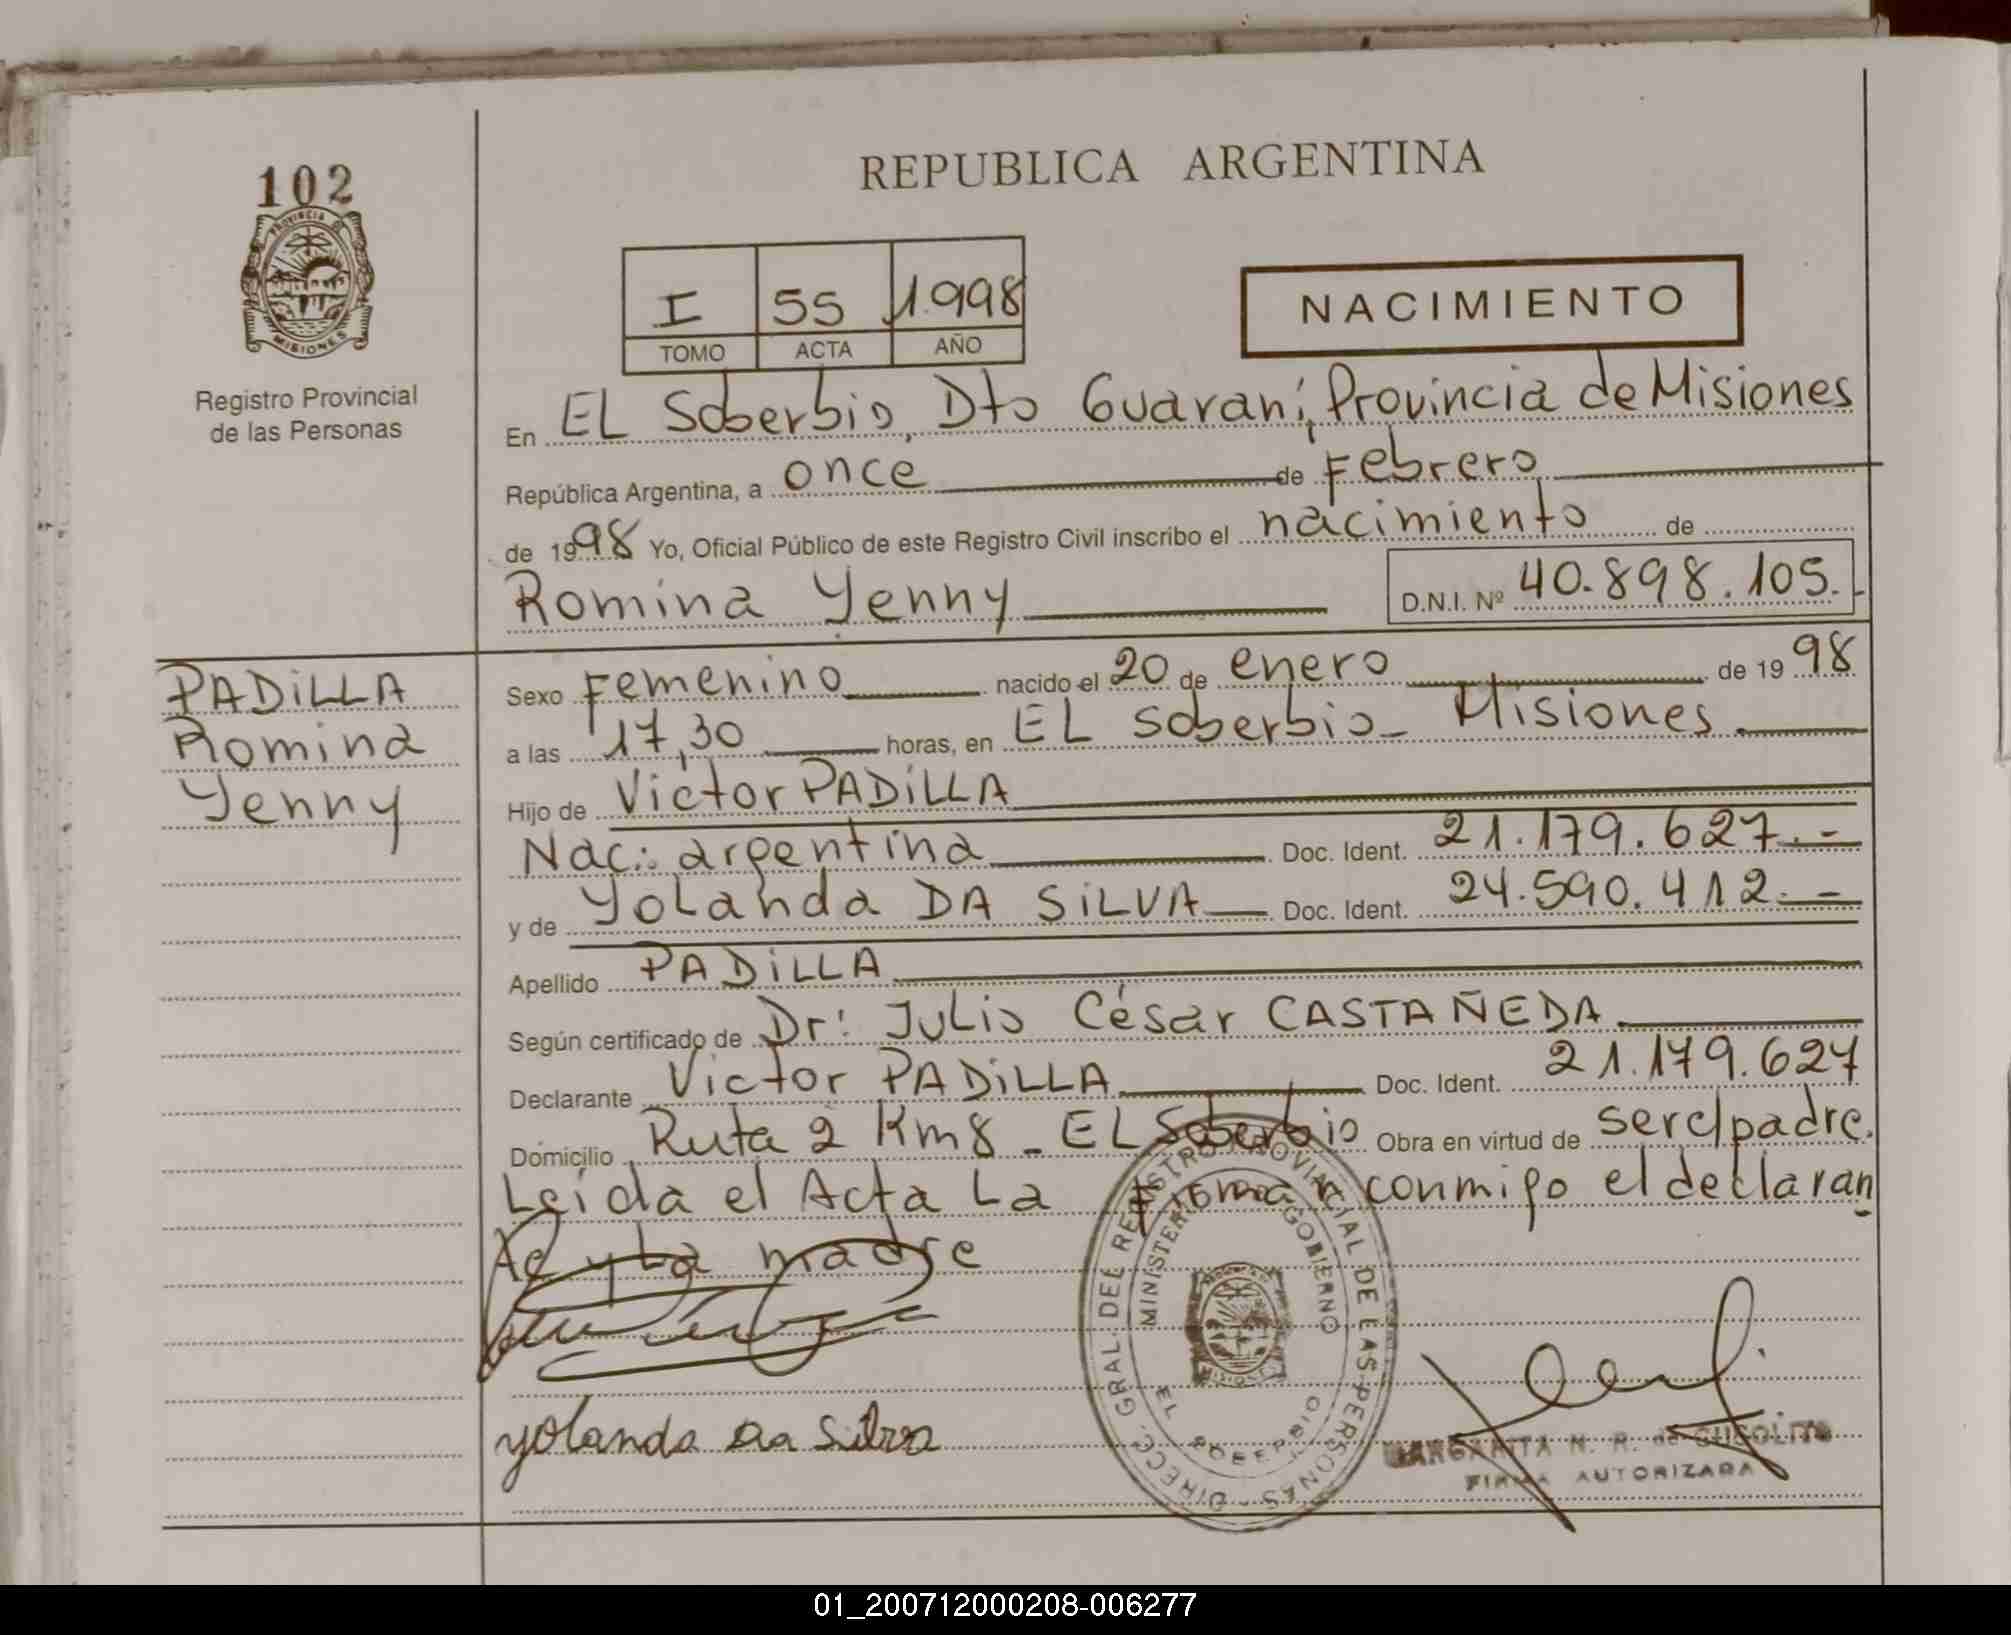 102
PROVINCIA DE
MISIONES
Registro Provincial
de las Personas
REPUBLICA ARGENTINA
I 55 1.998
TOMO ACTA AÑO
NACIMIENTO
En EL Soberbio, Dto Guaraní, Provincia de Misiones
República Argentina, a once de Febrero
de 1998 Yo, Oficial Público de este Registro Civil inscribo el nacimiento de
Romina Yenny D.N.I. Nº 40.898.105.-
PADiLLA
Romina
Yenny
Sexo Femenino nacido el 20 de enero de 1998
a las 17,30 horas, en EL Soberbio - Misiones
Hijo de Victor PADiLLA
Nac: argentina Doc. Ident. 21.179.627.-
y de Yolanda DA SiLVA Doc. Ident. 24.590.412.-
Apellido PADiLLA
Según certificado de Dr: Julio César CASTAÑEDA
Declarante Victor PADiLLA Doc. Ident. 21.179.627
Domicilio Ruta 2 Km 8 - EL Soberbio Obra en virtud de ser el padre.
Leida el Acta La Firman conmigo el declaran
te y La madre
DIRECC. GRAL. DEL REGISTRO PROVINCIAL DE LAS PERSONAS
MINISTERIO DE GOBIERNO
EL SOBERBIO
yolanda da Silva
MARGARITA N. R. de
FIRMA AUTORIZADA
01_200712000208-006277